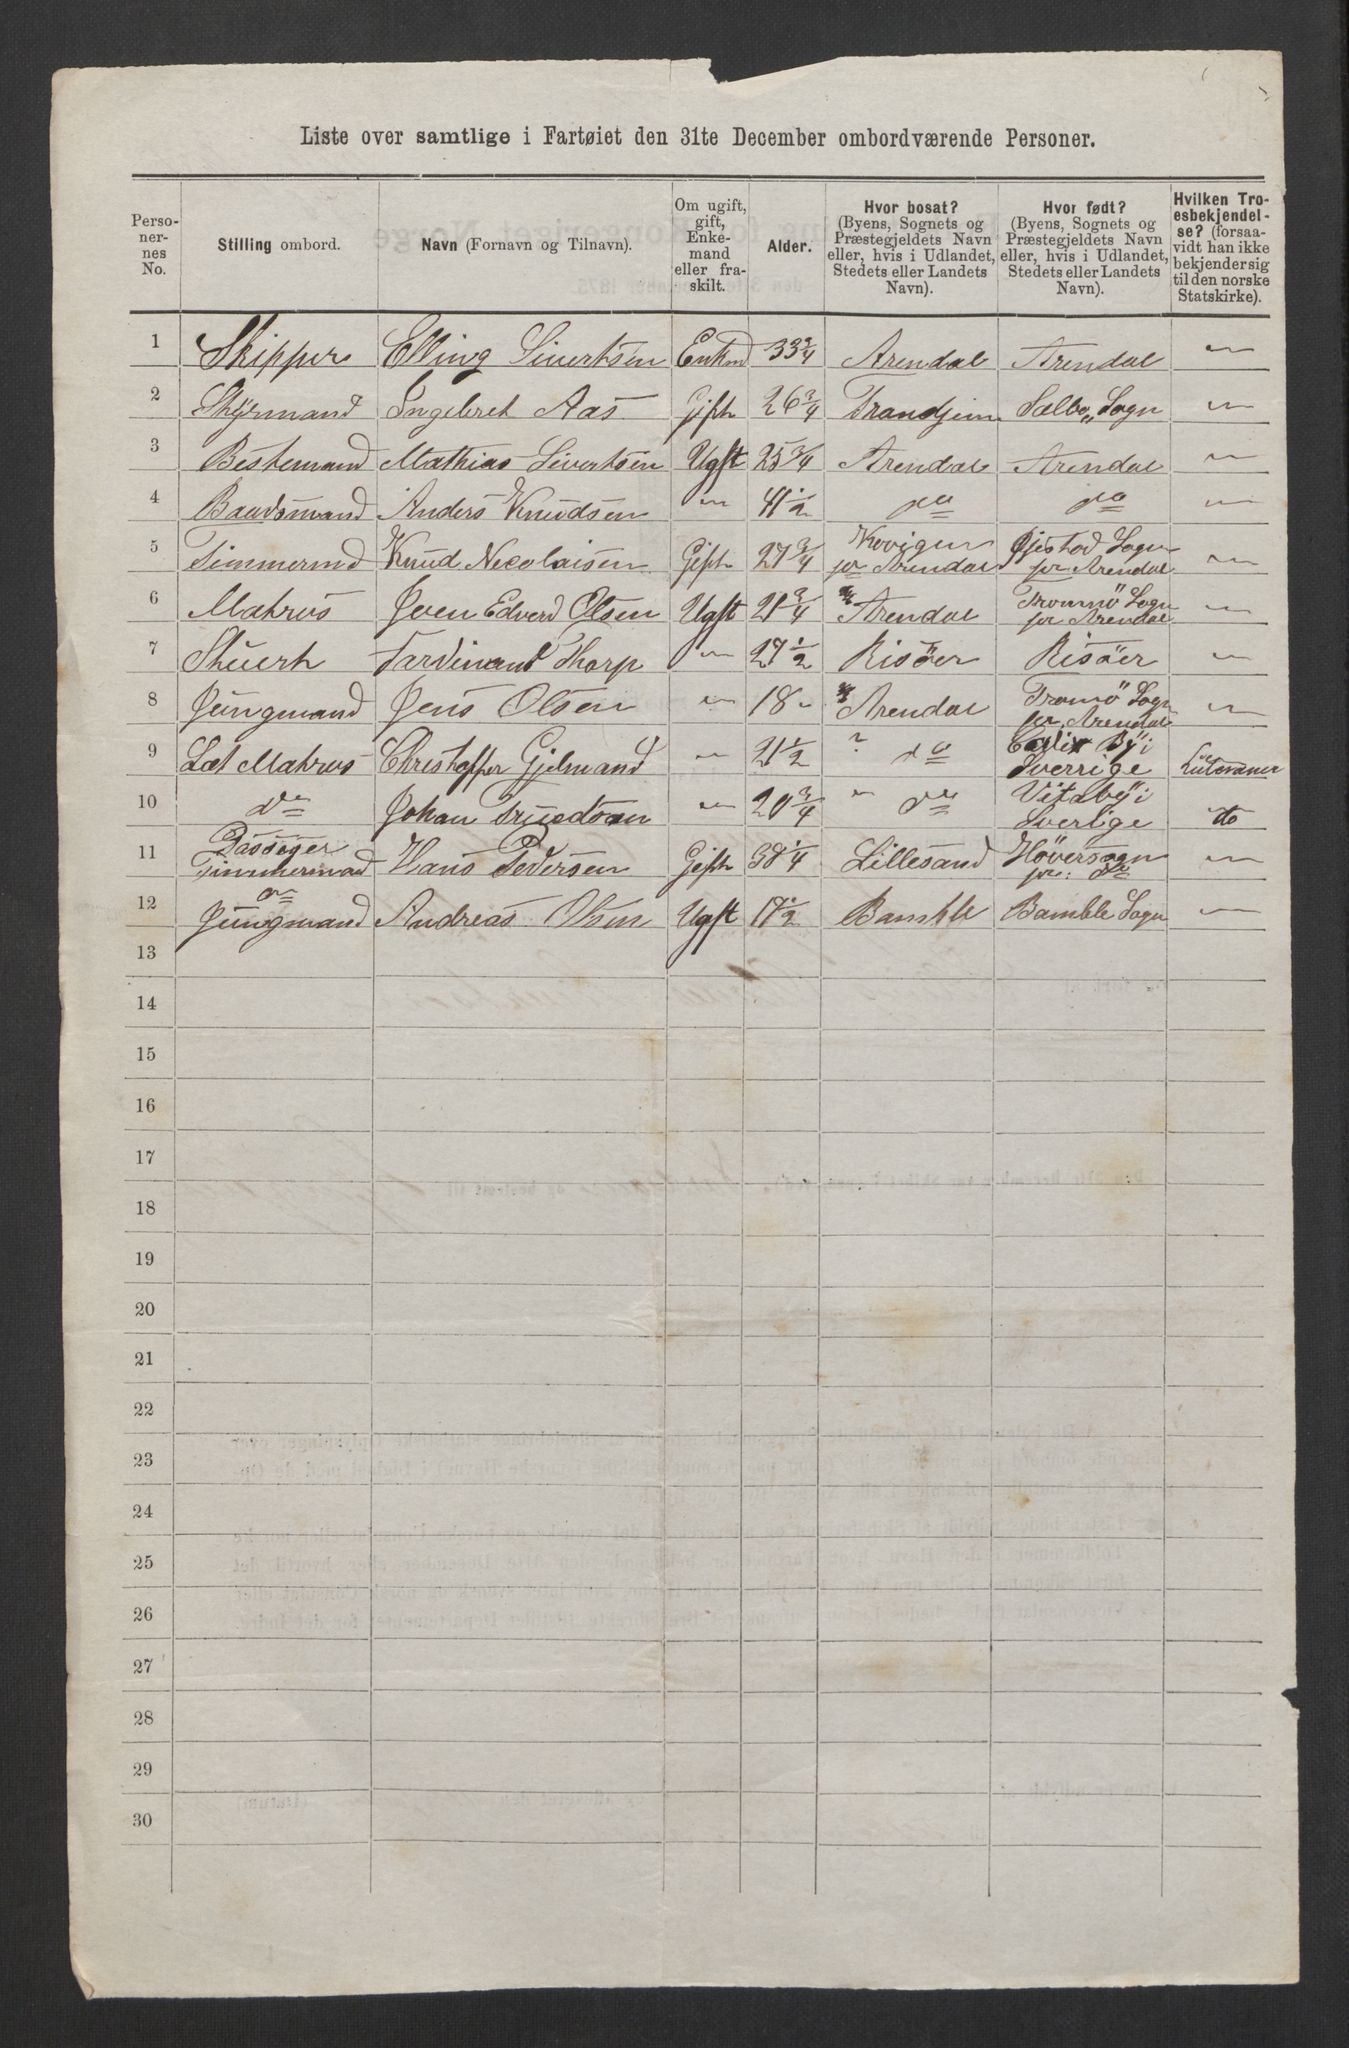 Liste over samtlige i Fartøiet den 31te December ombordværende Personer.
Personernes No. | Stilling ombord. | Navn (Fornavn og Tilnavn). | Om ugift, gift, Enkemand eller fraskilt. | Alder. | Hvor bosat? (Byens, Sognets og Præstegjeldets Navn eller, hvis i Udlandet, Stedets eller Landets Navn). | Hvor født? (Byens, Sognets og Præstegjeldets Navn eller, hvis i Udlandet, Stedets eller Landets Navn). | Hvilken Troesbekjendelse? (forsaavidt han ikke bekjender sig til den norske Statskirke).
1 Skipper Elling Sivertsen Enkmd 33 3/4 Arendal Arendal "
2 Styrmand Ingebret Aas Gift 26 3/4 Trondjem Sælbo Sogn "
3 Bestemand Mathias Sivertsen Ugft 25 3/4 Arendal Arendal "
4 Baadsmand Anders Knudsen " 41 1/2 do do "
5 Timmermd Knud Nicolaisen Gift 27 3/4 pr Arendal Øjestad Sogn pr Arendal "
6 Matros Joen Edverd Olsen Ugft 21 3/4 Arendal Tromø Sogn pr Arendal "
7 Stuert Fardinand Thorp " 27 1/2 Risöer Risöer "
8 Jungmand Jens Olsen " 18 " Arendal Tromö Sogn pr Arendal "
9 Let Matros Christoffer Gjelmand " 21 1/2 ? do By i Sverrige Luteraner
10 do Johan " 20 3/4 " do Vitaby i Sverige do
11 Passager Timmermad Hans Pedersen Gift 38 1/4 Lillesand Høversogn pr: do "
12 do Jungmand Andreas Olsen Ugft 17 1/2 Bamble Bamble Sogn "
13
14
15
16
17
18
19
20
21
22
23
24
25
26
27
28
29
30